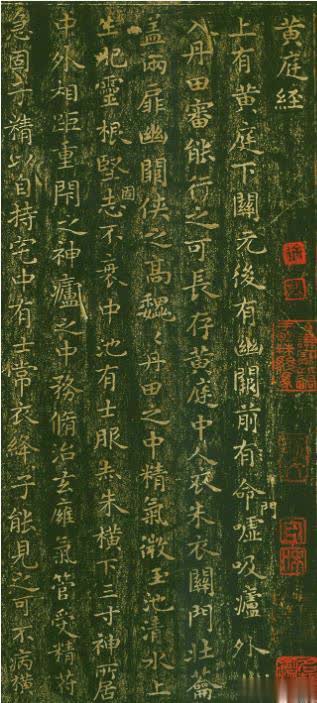 黄庭経
上有黄庭下關元後有幽闕前有命門嘘吸廬外
入丹田審能行之可長存黄庭中人衣朱衣關門壯籥
盖兩扉幽闕侠之髙巍〻丹田之中精氣微玉池清水上
生肥靈根堅固志不衰中池有士服赤朱横下三寸神所居
中外相距重閇之神廬之中務脩治玄廱氣管受精苻
急固子精以自持宅中有士常衣絳子能見之可不病横